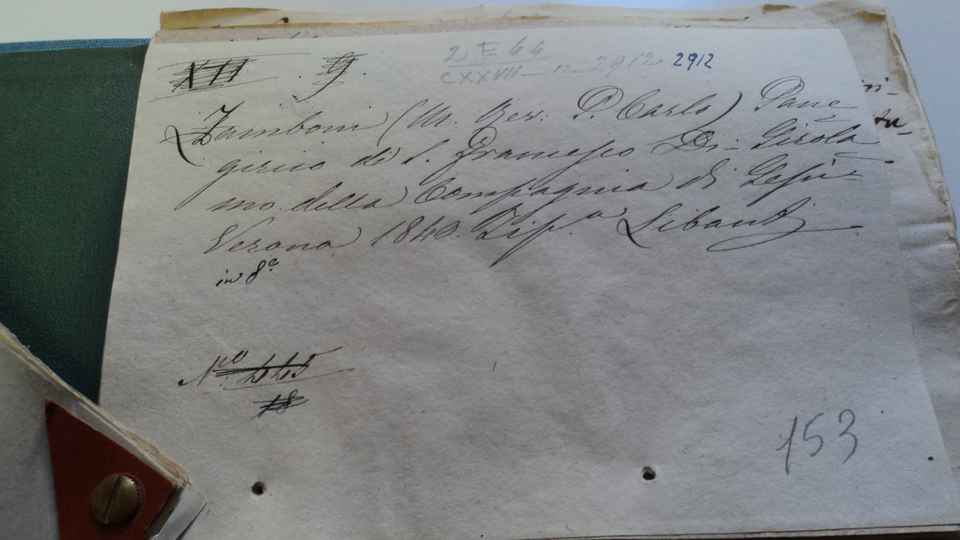 XII . 9.
2 E 64
CXXVII - 12 - 2912 2912
Zamboni (M. Rev. P. Carlo) Pane
girico di S. Francesco Di-Girola
mo della Compagnia di Gesù-
Verona 1840. Tip.a Libanti
in 8°
N.ro
18
153